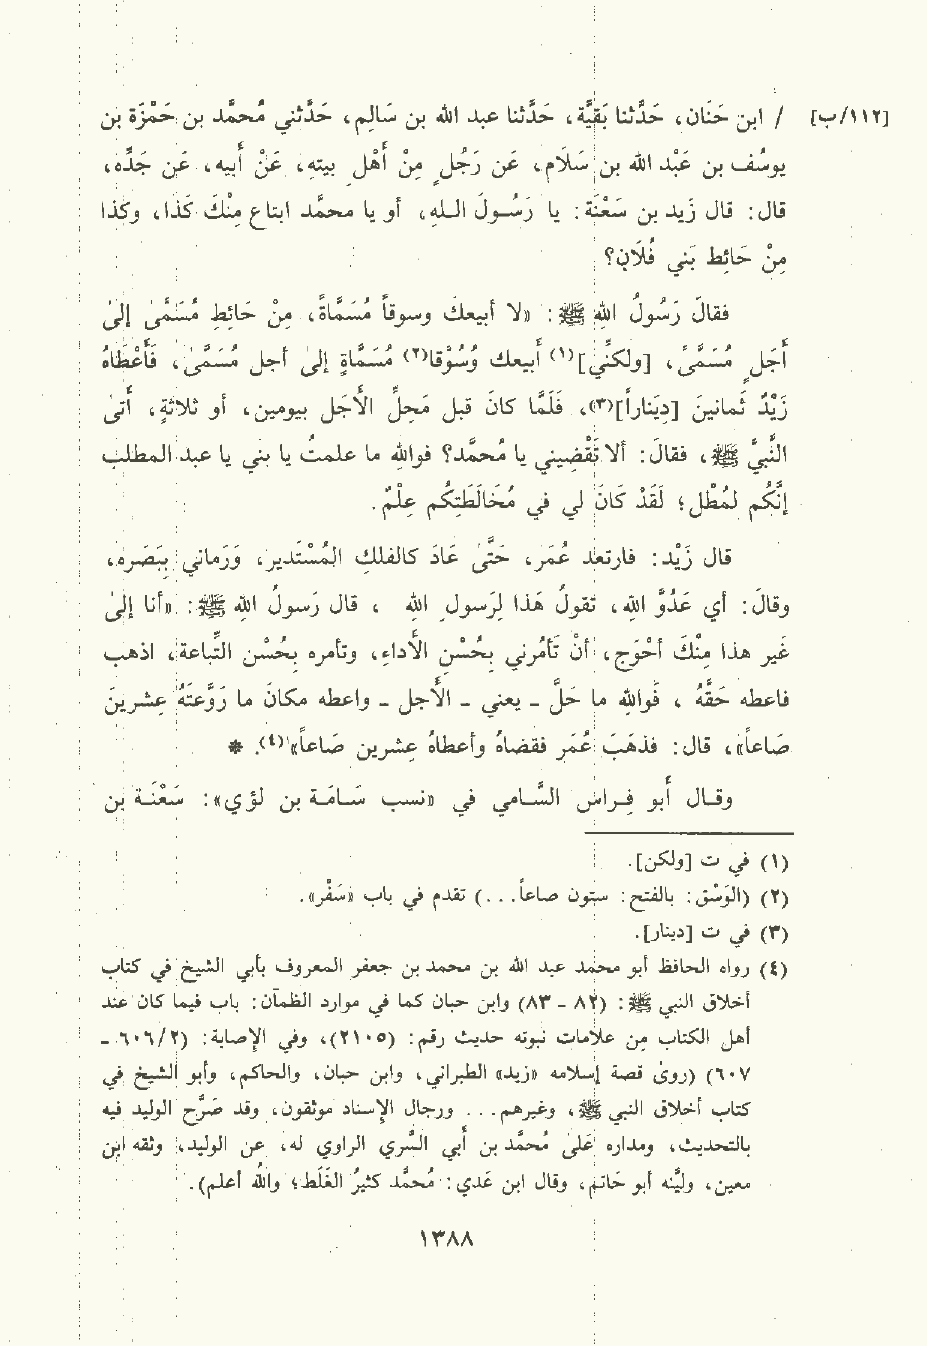 [١١٢/ب] / ابن حَنَان، حَدَّثنا بَقِيَّة، حَدَّثنا عبد الله بن سَالِم، حَدَّثني مُحمَّد بن حَمْزَة بن
يوسُف بن عَبْد الله بن سَلَام، عَن رَجُلٍ مِنْ أَهْلِ بيتهِ، عَنْ أَبيه، عَن جَدِّه،
قال: قال زَيد بن سَعْنَة: يا رَسُولَ اللهِ، أو يا محمَّد ابتاع مِنْكَ كَذا، وكذا
مِنْ حَائِط بَني فُلَانٍ؟
فقالَ رَسُولُ اللهِ ﷺ: «لا أبيعك وسوقاً مُسَمَّاةً، مِنْ حَائِطِ مُسَمَّى إلى
أَجَلٍ مُسَمَّىً، [ولكنِّي](١) أَبيعك وُسُوْقاً(٢) مُسَمَّاة إلى أجل مُسَمَّىً، فَأَعْطَاهُ
زَيْدٌ ثَمانينَ [دِيَناراً](٣)، فَلَمَّا كانَ قبل مَحِلِّ الأَجَل بيومين، أو ثلاثةٍ، أَتى
النَّبيَّ ﷺ، فقالَ: ألا تَقْضِيني يا مُحمَّد؟ فواللهِ ما علمتُ يا بني يا عبد المطلب
إنَّكُم لمُطْل؛ لَقَدْ كَانَ لي في مُخَالَطَتِكُم عِلْمٌ.
قال زَيْد: فارتعد عُمَر، حَتَّى عَادَ كالفلكِ المُسْتَدير، وَرَماني بِبَصَره،
وقالَ: أي عَدُوَّ اللهِ، تقولُ هَذا لِرَسولِ اللهِ ، قال رَسولُ اللهِ ﷺ: «أنا إلى
غير هذا مِنْكَ أَحْوَج، أنْ تَأمُرني بِحُسْنِ الأَداءِ، وتأمره بِحُسْنِ التِّباعة، اذهب
فاعطه حَقَّهُ ، فَواللهِ ما حَلَّ ـ يعني ـ الأَجل ـ واعطه مكانَ ما رَوَّعتَهُ عشرينَ
صَاعاً»، قال: فذهَبَ عُمَر فقضاهُ وأعطاهُ عشرين صَاعاً»(٤). *
وقال أَبو فِراس السَّامي في «نسب سَامَة بن لؤي»: سَعْنَة بن
(١) في ت [ولكن].
(٢) (الوَسْق: بالفتح: ستون صاعاً. . .) تقدم في باب «سَفْر».
(٣) في ت [دينار].
(٤) رواه الحافظ أبو محمد عبد الله بن محمد بن جعفر المعروف بأبي الشيخ في كتاب
أخلاق النبي ﷺ: (٨٢ - ٨٣) وابن حبان كما في موارد الظمآن: باب فيما كان عند
أهل الكتاب مِن علامات نبوته حديث رقم: (٢١٠٥)، وفي الإصابة: (٦٠٦/٢ -
٦٠٧) (روى قصة إسلامه «زيد» الطبراني، وابن حبان، والحاكم، وأبو الشيخ في
كتاب أخلاق النبي ﷺ، وغيرهم. . . ورجال الإسناد موثقون، وقد صَرَّح الوليد فيه
بالتحديث، ومداره على مُحمَّد بن أَبي السَّري الراوي له، عن الوليد، وثقه ابن
معين، وليَّنه أبو حَاتم، وقال ابن عَدي: مُحمَّد كثيرُ الغَلَط؛ واللهُ أعلم).
١٣٨٨